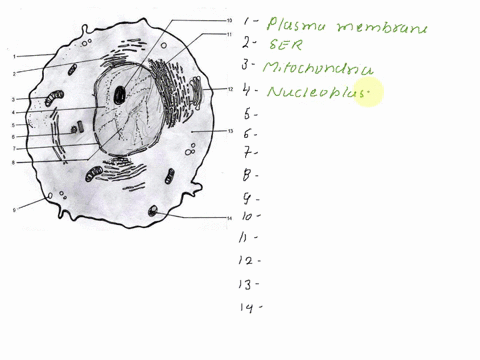 10
11
1
2
3
4
5
6
7
8
12
13
9
14
1 - Plasma membrane
2 - SER
3 - Mitochondria
4 - Nucleoplas
5 -
6 -
7 -
8 -
9 -
10 -
11 -
12 -
13 -
14 -